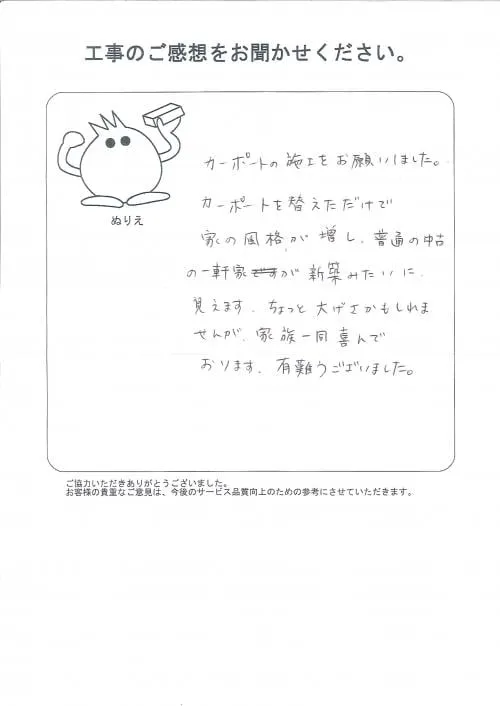 工事のご感想をお聞かせください。
ぬりえ
カーポートの施工をお願いしました。
カーポートを替えただけで
家の風格が増し、普通の中古
の一軒家ですが新築みたいに、
見えます、ちょっと大げさかもしれま
せんが、家族一同喜んで
おります、有難うございました。
ご協力いただきありがとうございました。
お客様の貴重なご意見は、今後のサービス品質向上のための参考にさせていただきます。